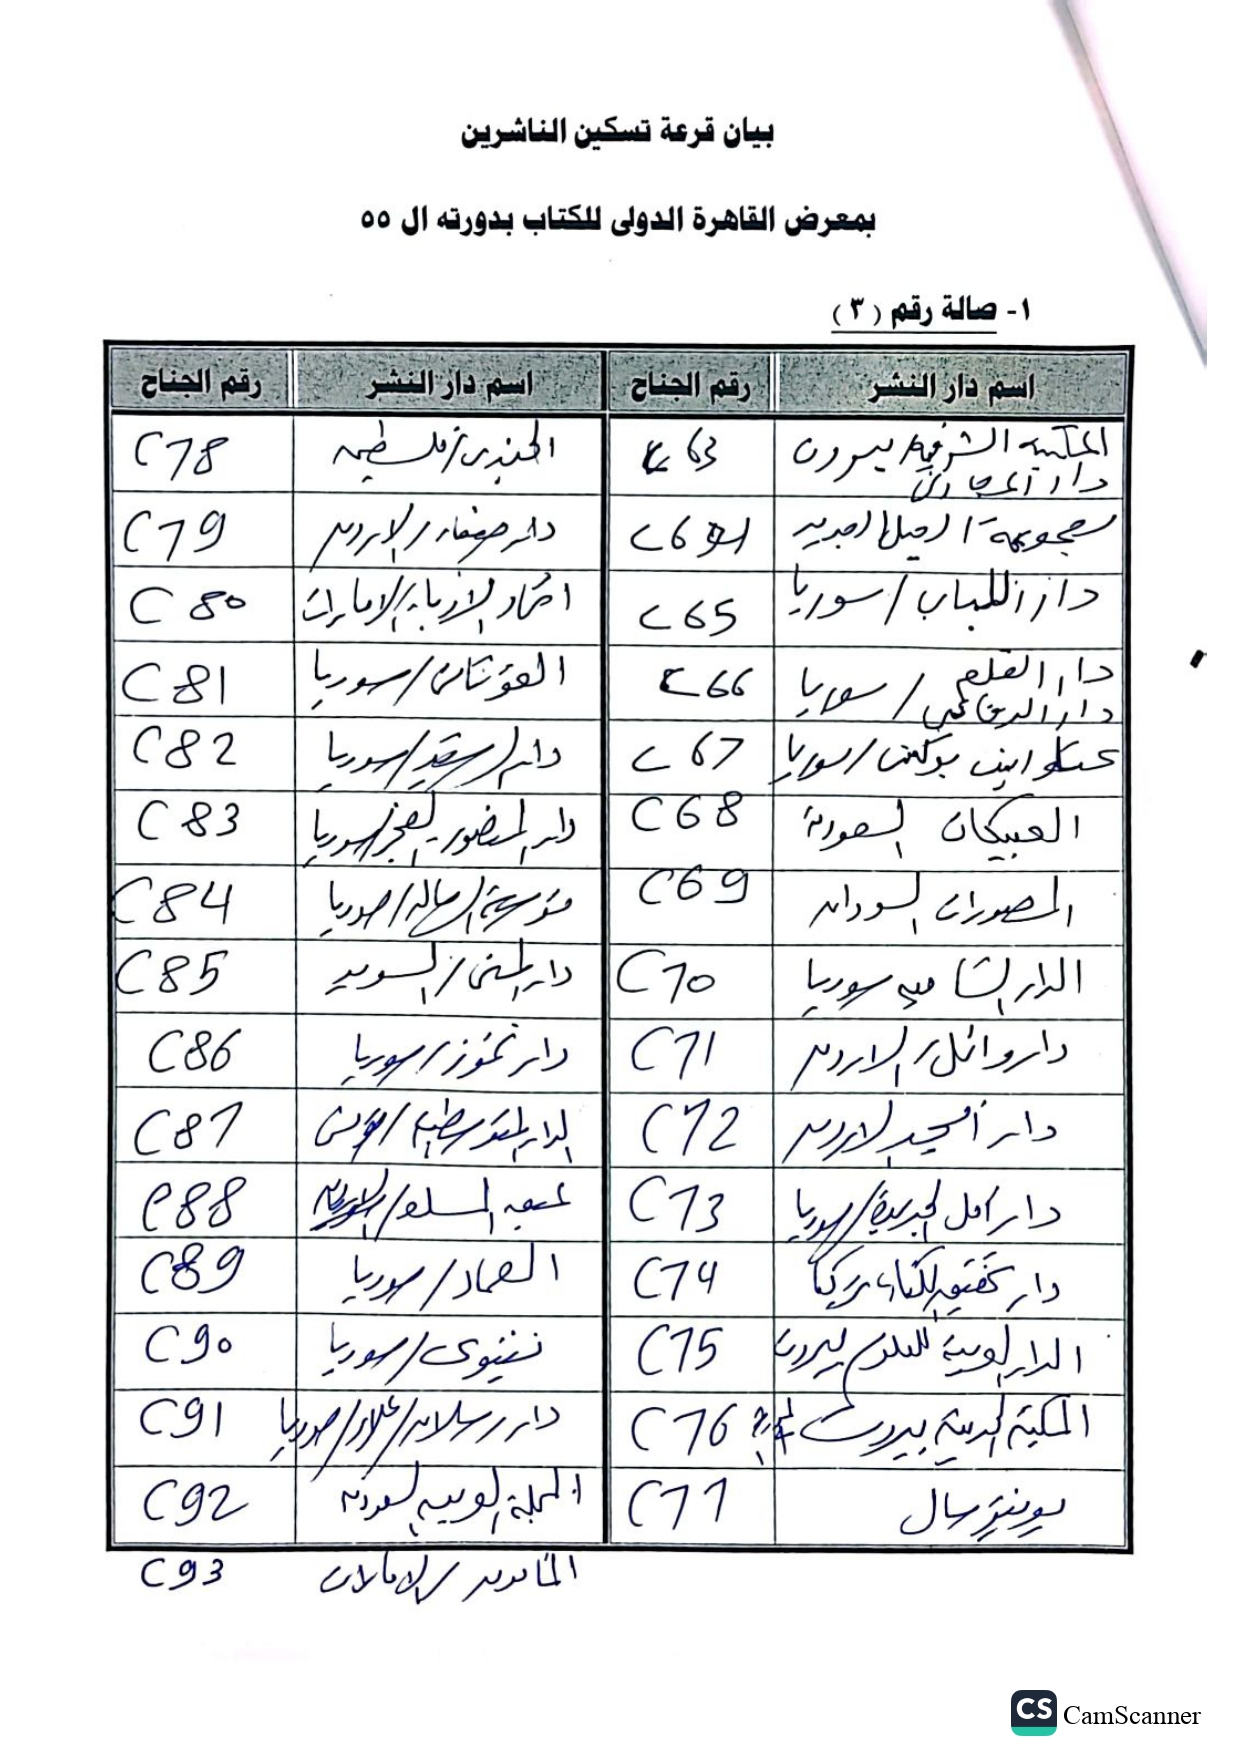 بيان قرعة تسكين الناشرين
بمعرض القاهرة الدولى للكتاب بدورته ال ٥٥
١- صالة رقم ( ٣ )
اسم دار النشر رقم الجناح اسم دار النشر رقم الجناح
المكتبة الشرقية/ بيروت C63 الجندى/فلسطين C78
دار
مجموعة الجيل الجديد C64 دار صفاء/الاردن C79
دار اللباب/سوريا C65 اتحاد الادباء/الامارات C80
دار القلم /سوريا C66 /سوريا C81
دار
بوكس/سوريا C67 دار /سوريا C82
العبيكان السعودية C68 دار /سوريا C83
المصورات السودان C69 مؤسسة الرسالة/سوريا C84
الدار الشامية سوريا C70 دار المنى/السويد C85
دار وائل/الاردن C71 دار تموز/سوريا C86
دار امجد الاردن C72 الدار المتوسطية/تونس C87
دار امل الجديدة/سوريا C73 C88
دار تحقيق الكتاب تركيا C74 العماد/سوريا C89
الدار العربية للعلوم بيروت C75 نينوى/سوريا C90
المكتبة الحديثة بيروت C76 دار رسلان/علاء/سوريا C91
يونيفرسال C77 المجلة العربية السعودية C92
/الامارات C93
CS CamScanner